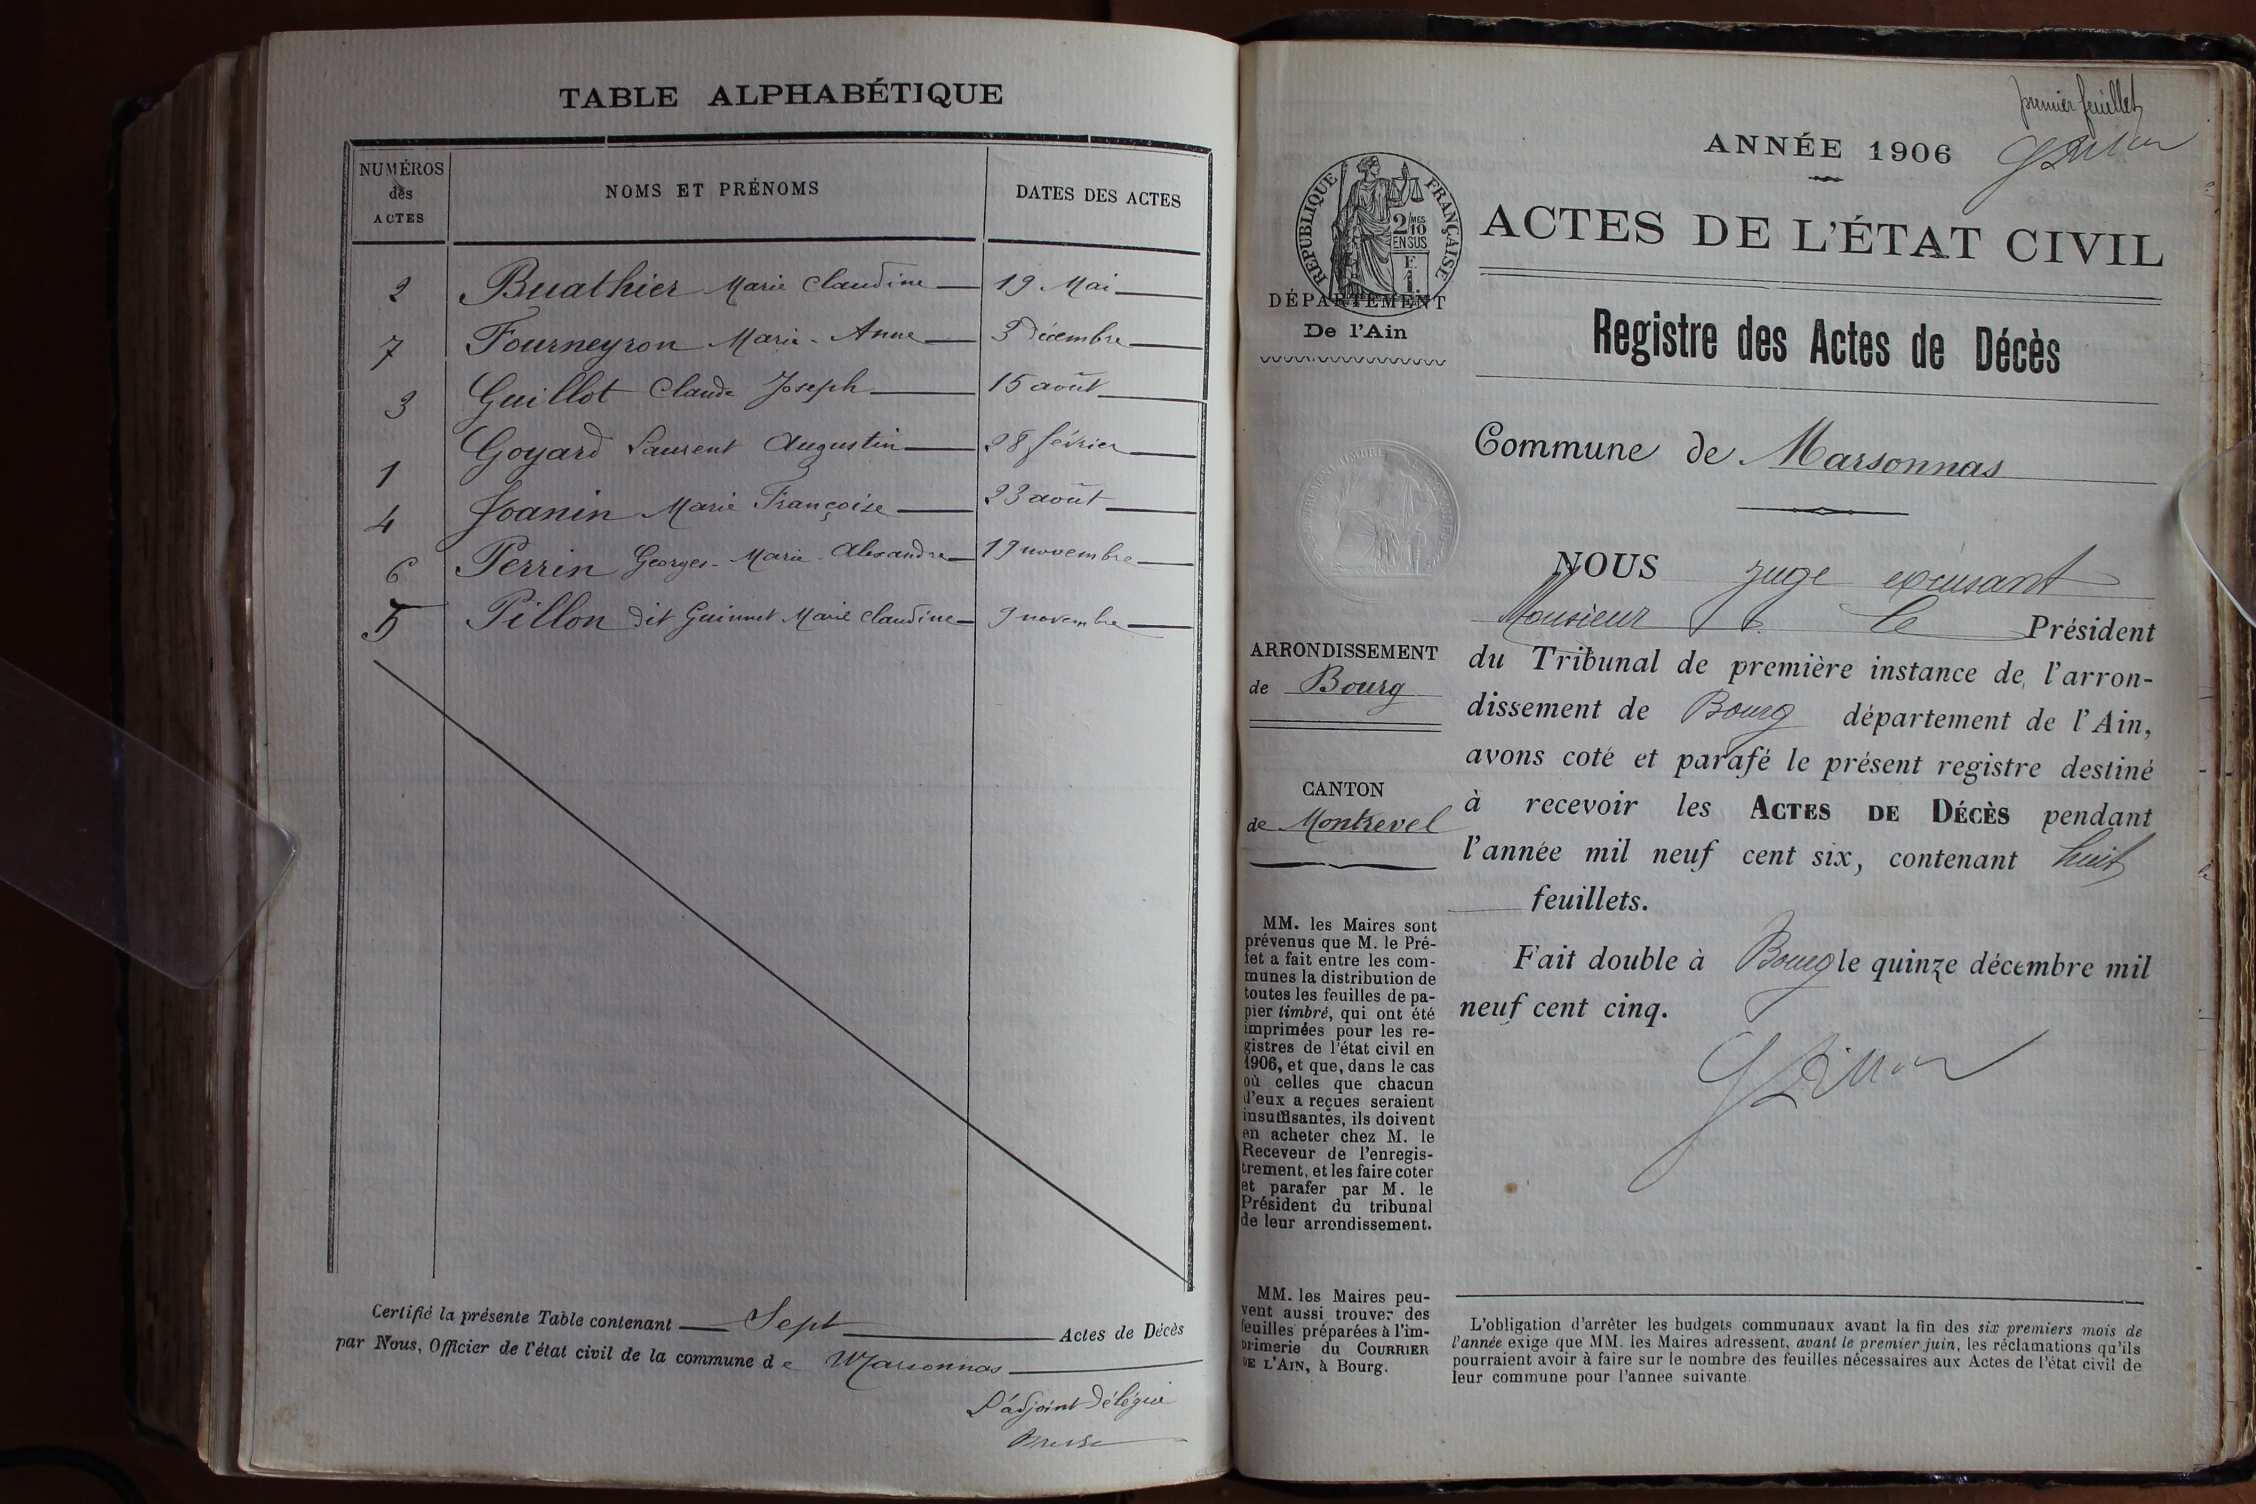 TABLE ALPHABÉTIQUE
NUMÉROS des ACTES
NOMS ET PRÉNOMS
DATES DES ACTES
2 Buathier Marie Claudine 19 Mai
7 Fourneyron Marie-Anne 3 décembre
3 Guillot Claude Joseph 15 août
1 Goyard Laurent Augustin 28 février
4 Joanin Marie Françoise 23 août
6 Perrin Georges-Marie-Alexandre 19 novembre
5 Pillon dit Guinnet Marie Claudine 9 novembre
Certifié la présente Table contenant Sept Actes de Décès
par Nous, Officier de l'état civil de la commune de Marsonnas
L'adjoint délégué
premier feuillet
ANNÉE 1906
RÉPUBLIQUE FRANÇAISE
2/10 MES
EN SUS
F
1
ACTES DE L'ÉTAT CIVIL
DÉPARTEMENT
De l'Ain
Registre des Actes de Décès
Commune de Marsonnas
NOUS juge excusant
Monsieur Le Président
du Tribunal de première instance de l'arron-
dissement de Bourg département de l'Ain,
avons coté et parafé le présent registre destiné
à recevoir les ACTES DE DÉCÈS pendant
l'année mil neuf cent six, contenant huit
feuillets.
Fait double à Bourg le quinze décembre mil
neuf cent cinq.
ARRONDISSEMENT
de Bourg
CANTON
de Montrevel
MM. les Maires sont
prévenus que M. le Pré-
fet a fait entre les com-
munes la distribution de
toutes les feuilles de pa-
pier timbré, qui ont été
imprimées pour les re-
gistres de l'état civil en
1906, et que, dans le cas
où celles que chacun
d'eux a reçues seraient
insuffisantes, ils doivent
en acheter chez M. le
Receveur de l'enregis-
trement, et les faire coter
et parafer par M. le
Président du tribunal
de leur arrondissement.
MM. les Maires peu-
vent aussi trouver des
feuilles préparées à l'im-
primerie du COURRIER
DE L'AIN, à Bourg.
L'obligation d'arrêter les budgets communaux avant la fin des six premiers mois de
l'année exige que MM. les Maires adressent, avant le premier juin, les réclamations qu'ils
pourraient avoir à faire sur le nombre des feuilles nécessaires aux Actes de l'état civil de
leur commune pour l'année suivante